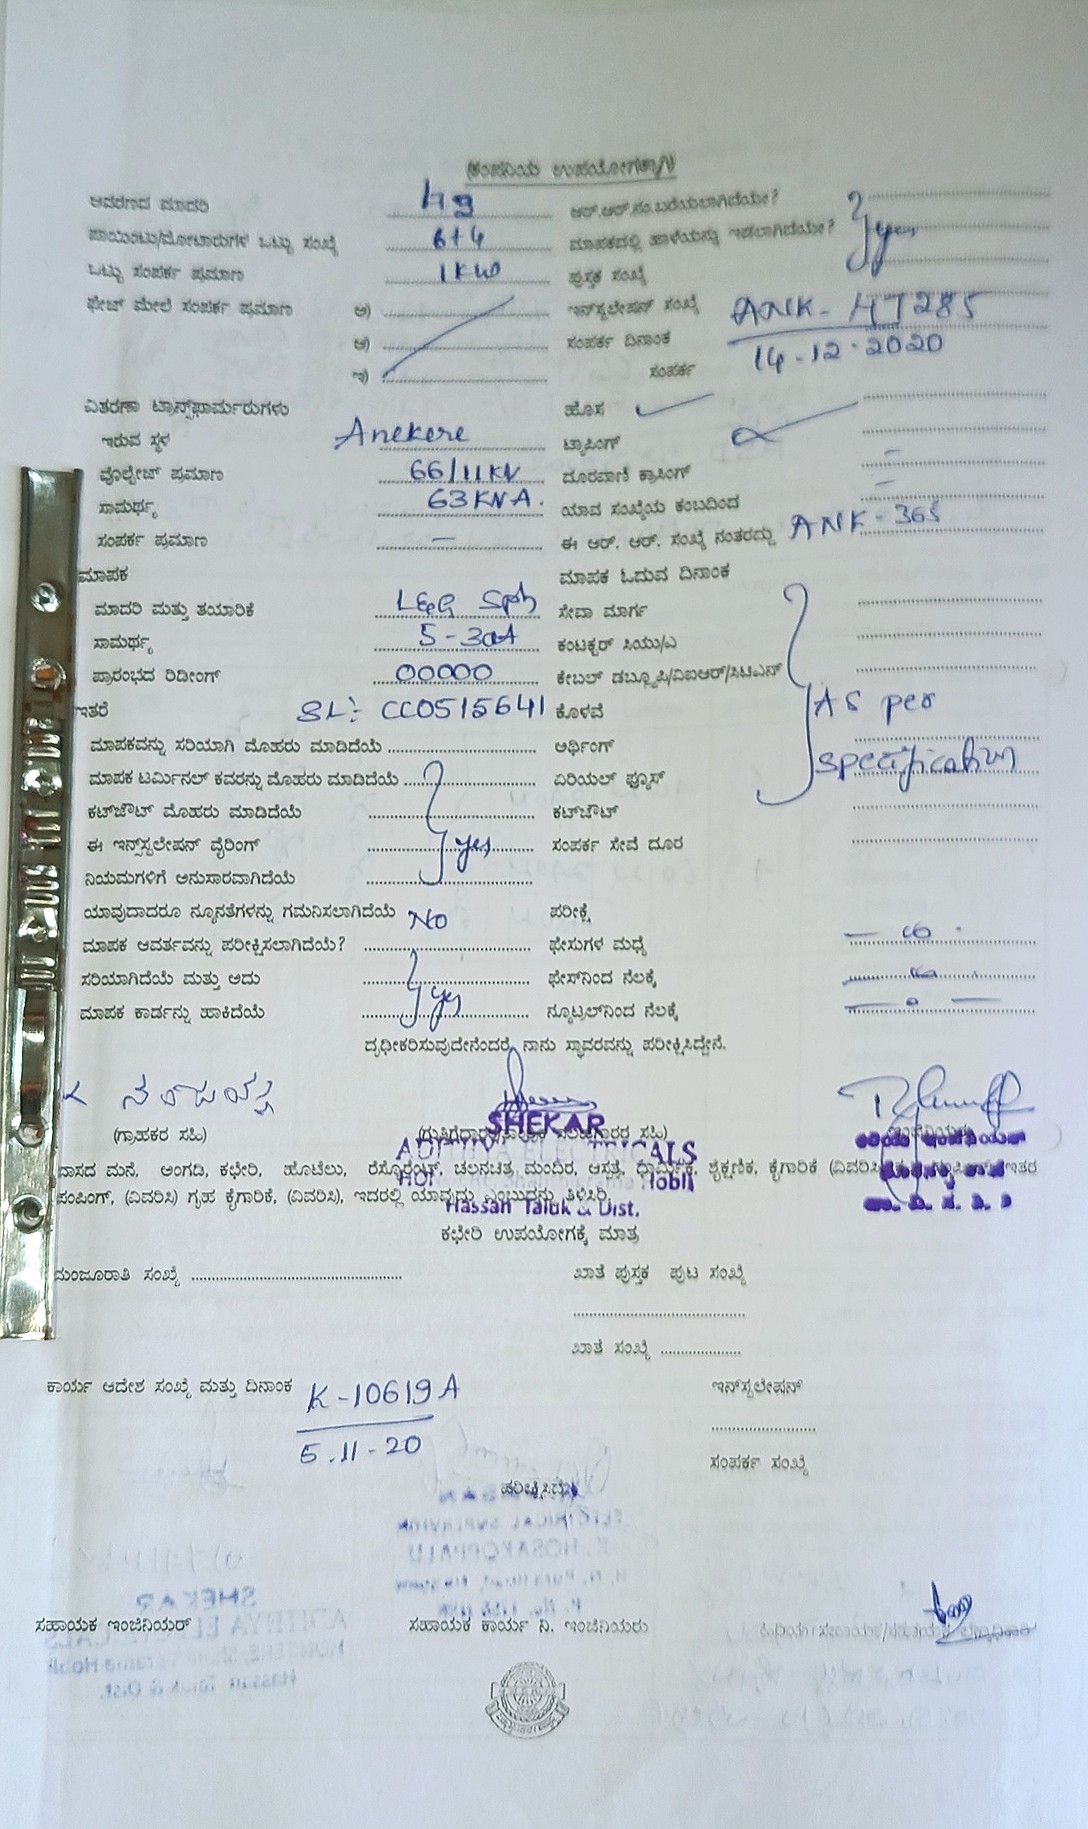 (ಕಂಪನಿಯ ಉಪಯೋಗಕ್ಕಾಗಿ)
ಆವರಣದ ಮಾದರಿ ಆರ್.ಆರ್.ಸಂ.ಬರೆಯಲಾಗಿದೆಯೇ?
ಪಾಯಿಂಟು/ಮೋಟಾರುಗಳ ಒಟ್ಟು ಸಂಖ್ಯೆ 6+4 ಮಾಪಕದಲ್ಲಿ ಹಾಳೆಯನ್ನು ಇಡಲಾಗಿದೆಯೇ? yes
ಒಟ್ಟು ಸಂಪರ್ಕ ಪ್ರಮಾಣ 1KW ಪುಸ್ತಕ ಸಂಖ್ಯೆ
ಫೇಜ್ ಮೇಲೆ ಸಂಪರ್ಕ ಪ್ರಮಾಣ ಅ) ಇನ್‌ಸ್ಟಲೇಷನ್ ಸಂಖ್ಯೆ ANK-HT285
ಆ) ಸಂಪರ್ಕ ದಿನಾಂಕ 14-12-2020
ಇ) ಸಂಪರ್ಕ
ವಿತರಣಾ ಟ್ರಾನ್ಸ್‌ಫಾರ್ಮರುಗಳು ಹೊಸ
ಇರುವ ಸ್ಥಳ Anekere ಟ್ಯಾಪಿಂಗ್
ವೊಲ್ಟೇಜ್ ಪ್ರಮಾಣ 66/11KV ದೂರವಾಣಿ ಕ್ರಾಸಿಂಗ್ –
ಸಾಮರ್ಥ್ಯ 63KVA. ಯಾವ ಸಂಖ್ಯೆಯ ಕಂಬದಿಂದ –
ಸಂಪರ್ಕ ಪ್ರಮಾಣ – ಈ ಆರ್. ಆರ್. ಸಂಖ್ಯೆ ನಂತರದ್ದು ANK-365
ಮಾಪಕ ಮಾಪಕ ಓದುವ ದಿನಾಂಕ
ಮಾದರಿ ಮತ್ತು ತಯಾರಿಕೆ L&G Sph ಸೇವಾ ಮಾರ್ಗ
ಸಾಮರ್ಥ್ಯ 5-30A ಕಂಟಕ್ಟರ್ ಸಿಯು/ಎ
ಪ್ರಾರಂಭದ ರಿಡೀಂಗ್ 00000 ಕೇಬಲ್ ಡಬ್ಲ್ಯೂಪಿ/ವಿಐಆರ್/ಸಿಟಿಎಸ್
ಇತರೆ SL:- CC0515641 ಕೊಳವೆ As per
ಮಾಪಕವನ್ನು ಸರಿಯಾಗಿ ಮೊಹರು ಮಾಡಿದೆಯೆ ಆರ್ಥಿಂಗ್
ಮಾಪಕ ಟರ್ಮಿನಲ್ ಕವರನ್ನು ಮೊಹರು ಮಾಡಿದೆಯೆ ಏರಿಯಲ್ ಫ್ಯೂಸ್ specification
ಕಟ್‌ಔಟ್ ಮೊಹರು ಮಾಡಿದೆಯೆ ಕಟ್‌ಔಟ್
ಈ ಇನ್ಸ್‌ಟಲೇಷನ್ ವೈರಿಂಗ್ yes ಸಂಪರ್ಕ ಸೇವೆ ದೂರ
ನಿಯಮಗಳಿಗೆ ಅನುಸಾರವಾಗಿದೆಯೆ
ಯಾವುದಾದರೂ ನ್ಯೂನತೆಗಳನ್ನು ಗಮನಿಸಲಾಗಿದೆಯೆ NO ಪರೀಕ್ಷೆ
ಮಾಪಕ ಆವರ್ತವನ್ನು ಪರೀಕ್ಷಿಸಲಾಗಿದೆಯೆ? ಫೇಸುಗಳ ಮಧ್ಯೆ
ಸರಿಯಾಗಿದೆಯೆ ಮತ್ತು ಅದು ಫೇಸ್‌ನಿಂದ ನೆಲಕ್ಕೆ
ಮಾಪಕ ಕಾರ್ಡನ್ನು ಹಾಕಿದೆಯೆ yes ನ್ಯೂಟ್ರಲ್‌ನಿಂದ ನೆಲಕ್ಕೆ
ದೃಢೀಕರಿಸುವುದೇನೆಂದರೆ ನಾನು ಸ್ಥಾವರವನ್ನು ಪರೀಕ್ಷಿಸಿದ್ದೇನೆ.
SHEKAR
(ಗ್ರಾಹಕರ ಸಹಿ)
ADITHYA ELECTRICALS
ವಾಸದ ಮನೆ, ಅಂಗಡಿ, ಕಛೇರಿ, ಹೊಟೆಲು, ರೆಸ್ಟೊರೆಂಟ್, ಚಲನಚಿತ್ರ ಮಂದಿರ, ಆಸ್ಪತ್ರೆ, ಧಾರ್ಮಿಕ, ಶೈಕ್ಷಣಿಕ, ಕೈಗಾರಿಕೆ ಇತರ
Hobli
ಪಂಪಿಂಗ್, (ವಿವರಿಸಿ) ಗೃಹ ಕೈಗಾರಿಕೆ, (ವಿವರಿಸಿ), ಇದರಲ್ಲಿ ಯಾವುದು ಎಂಬುದನ್ನು ತಿಳಿಸಿರಿ.
Hassan Taluk & Dist.
ಕಛೇರಿ ಉಪಯೋಗಕ್ಕೆ ಮಾತ್ರ
ಮಂಜೂರಾತಿ ಸಂಖ್ಯೆ ಖಾತೆ ಪುಸ್ತಕ ಪುಟ ಸಂಖ್ಯೆ
ಖಾತೆ ಸಂಖ್ಯೆ
ಕಾರ್ಯ ಆದೇಶ ಸಂಖ್ಯೆ ಮತ್ತು ದಿನಾಂಕ K-10619A ಇನ್‌ಸ್ಟಲೇಷನ್
5.11-20
ಸಂಪರ್ಕ ಸಂಖ್ಯೆ
ಸಹಾಯಕ ಇಂಜಿನಿಯರ್ ಸಹಾಯಕ ಕಾರ್ಯ ನಿ. ಇಂಜಿನಿಯರು